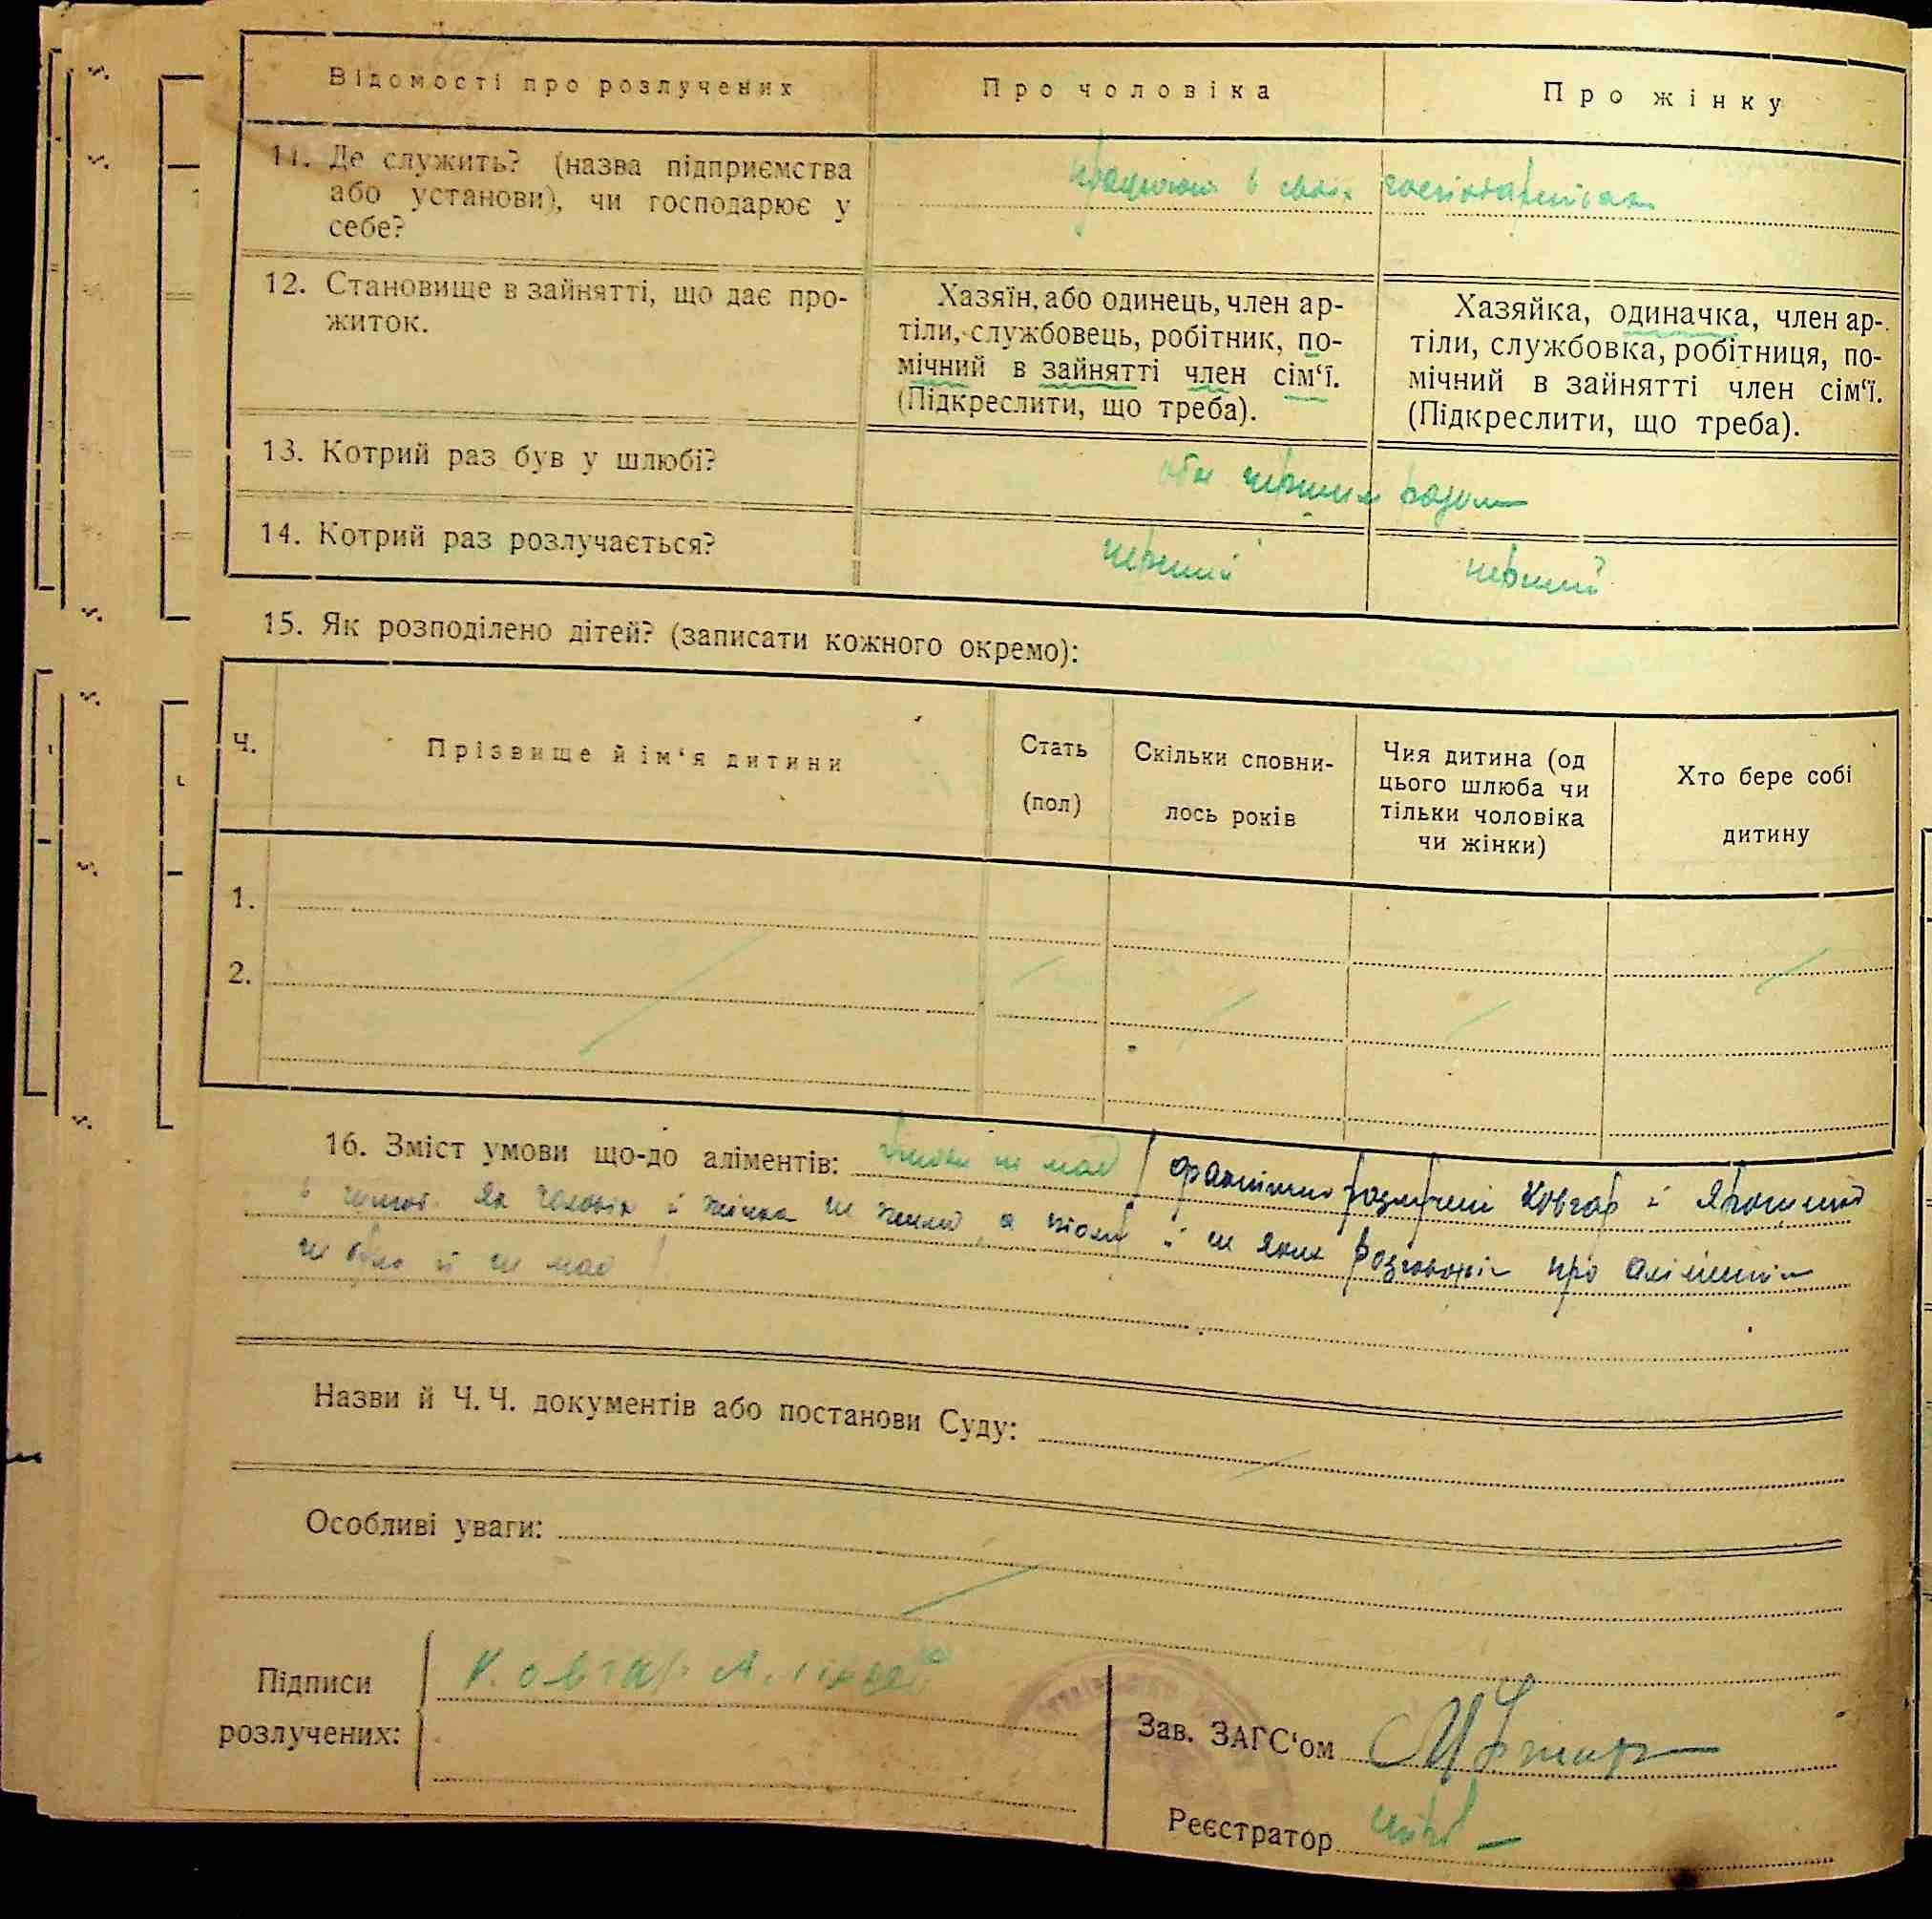 Відомості про розлучених
Про чоловіка
Про жінку
11. Де служить? (назва підприємства
або установи), чи господарює у
себе?
працюють в своїх господарствах
12. Становище в зайнятті, що дає про-
житок.
Хазяїн, або одинець, член ар-
тіли, службовець, робітник, по-
мічний в зайнятті член сім‘ї.
(Підкреслити, що треба).
Хазяйка, одиначка, член ар-
тіли, службовка, робітниця, по-
мічний в зайнятті член сім‘ї.
(Підкреслити, що треба).
13. Котрий раз був у шлюбі?
оби першим разом
14. Котрий раз розлучається?
перший
перший
15. Як розподілено дітей? (записати кожного окремо):
Ч.
Прізвище й ім‘я дитини
Стать
(пол)
Скільки сповни-
лось років
Чия дитина (од
цього шлюба чи
тільки чоловіка
чи жінки)
Хто бере собі
дитину
1.
2.
16. Зміст умови що-до аліментів: не має фактично розлучені Ковгар і
як чоловік й жінка не жили, а тому і ні яких розговорів про аліменти
не було й не має
Назви й Ч. Ч. документів або постанови Суду:
Особливі уваги:
Підписи
розлучених:
Ковгар
Зав. ЗАГС‘ом
Реєстратор